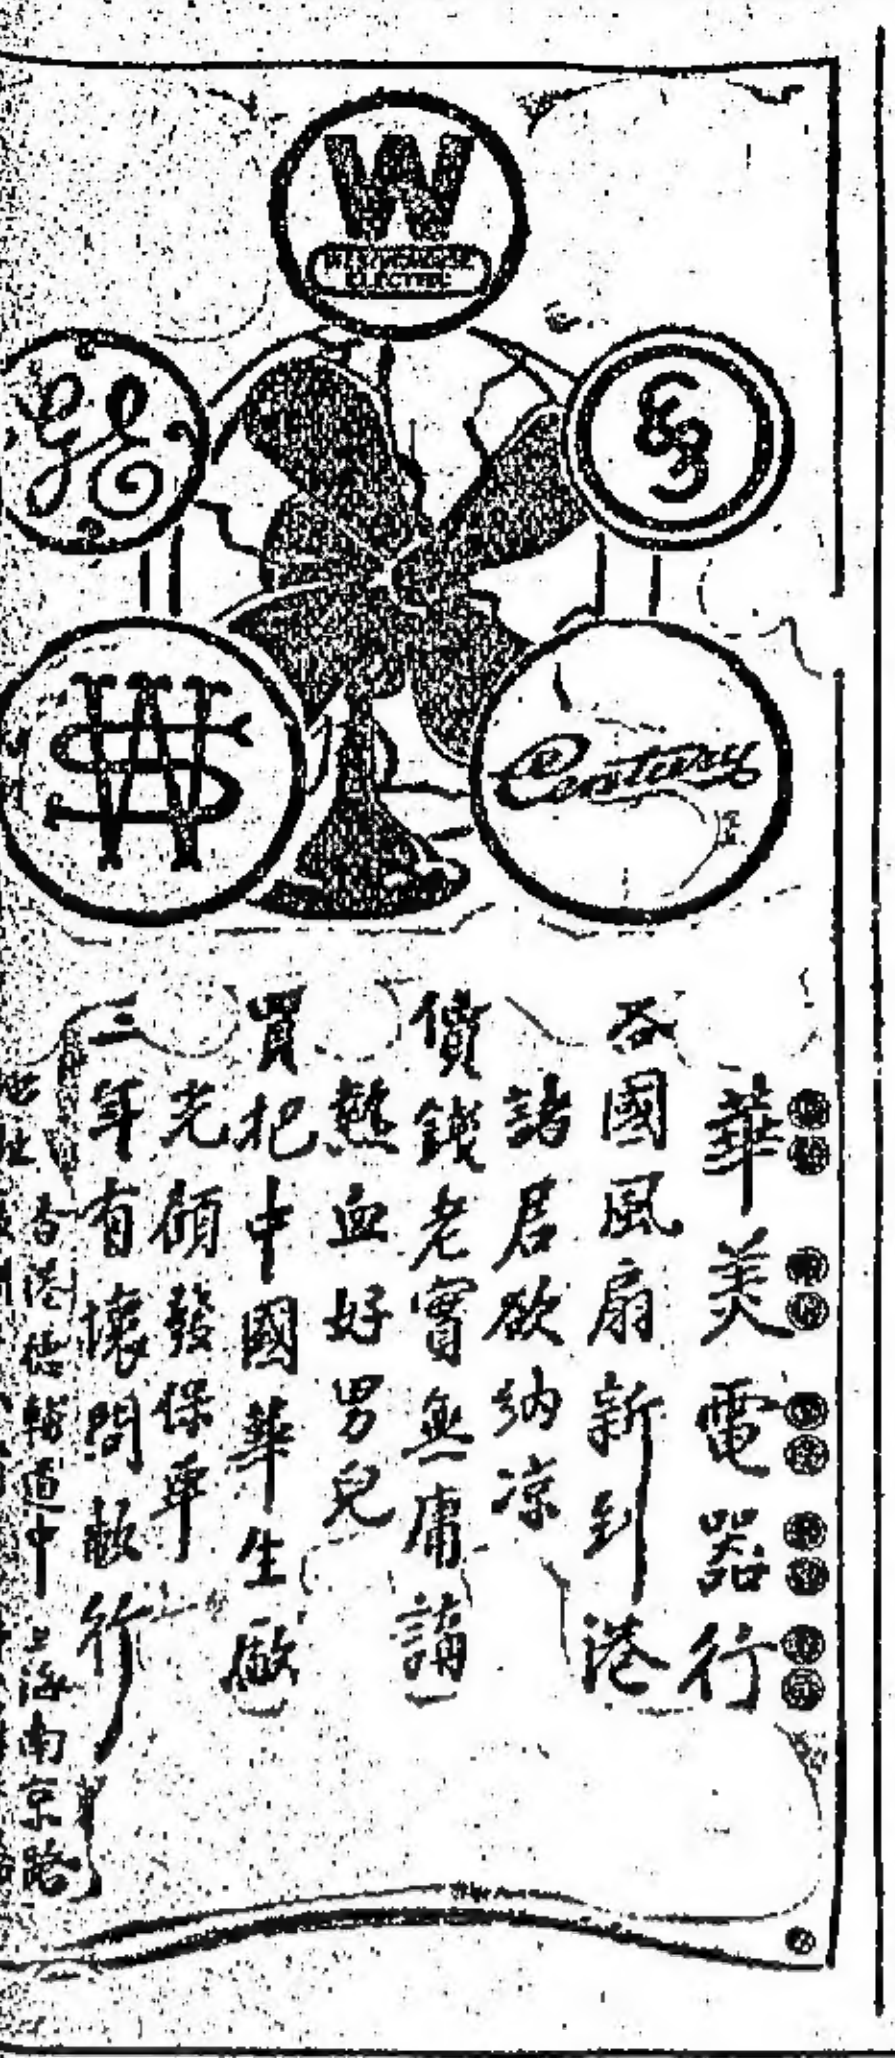 W
WESTINGHOUSE
ELECTRIC
GE
Century
華美電器行
各國風扇新到港
諸君欲納凉
價錢老實無庸講
熱血好男兒
買把中國華生廠
光顧發保單
三年有壞問敝行
香港德輔道中
上海南京路